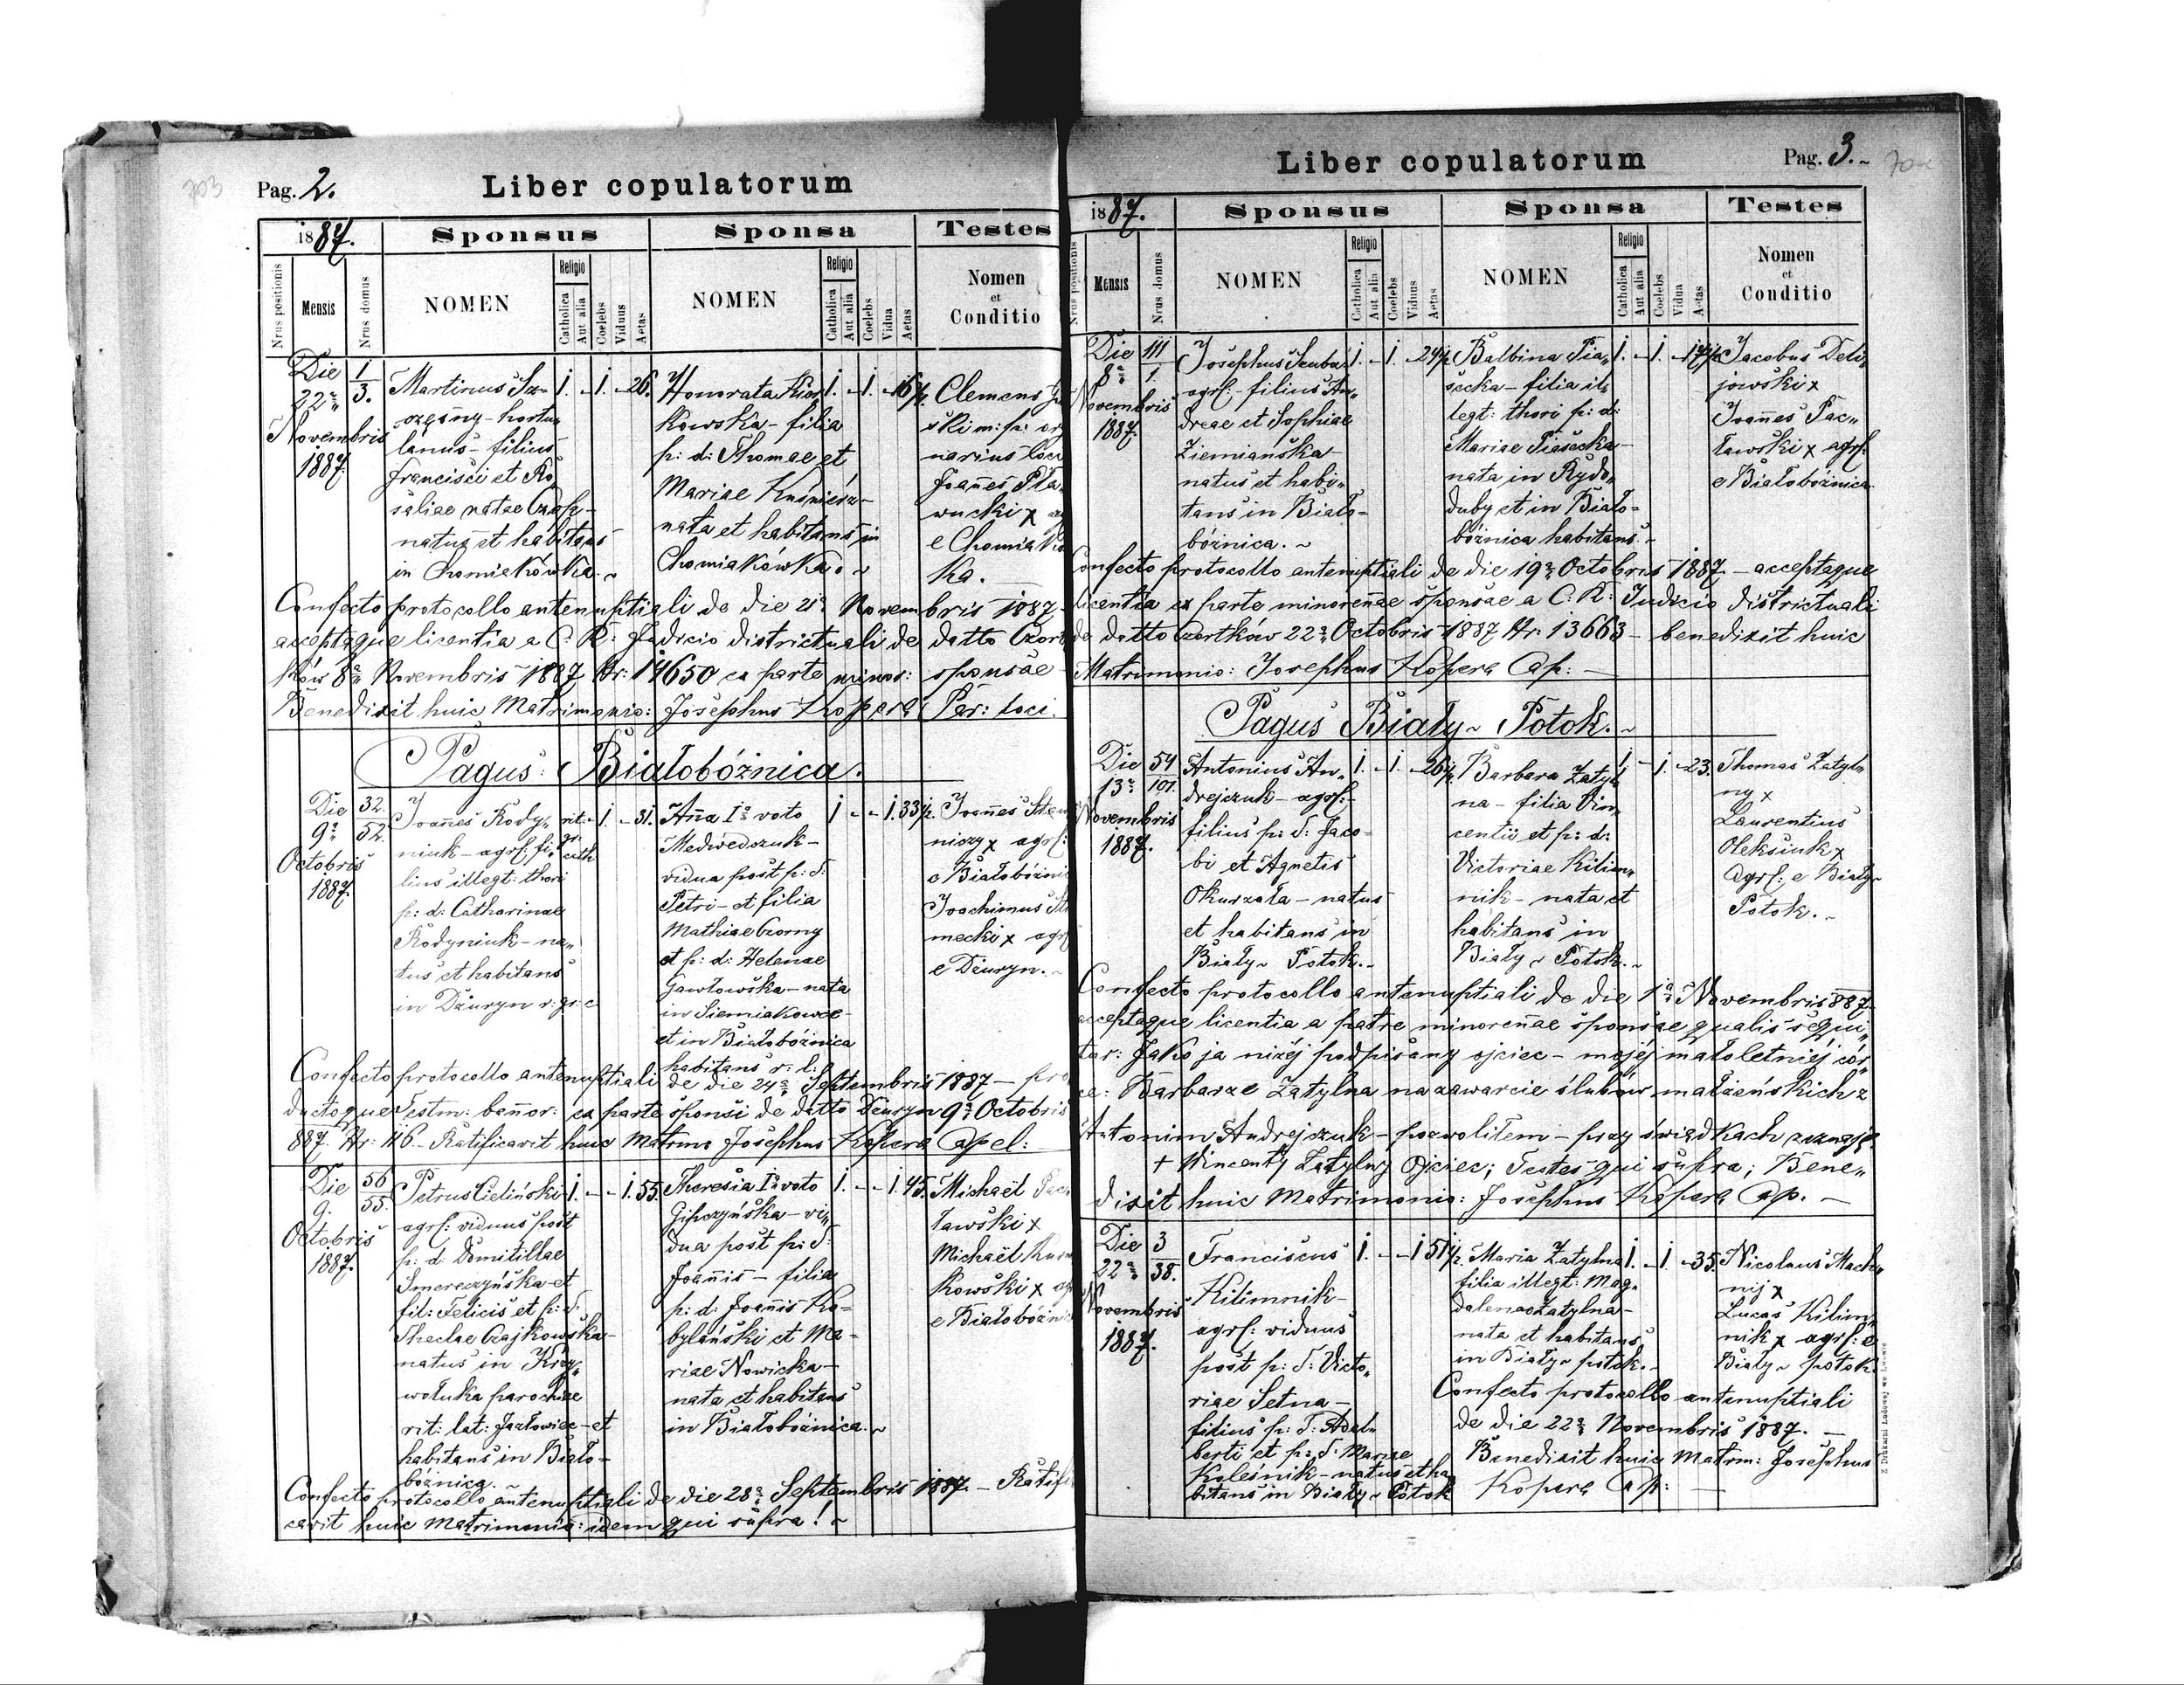 Pag. 2.
Liber copulatorum
1887.
Sponsus
Sponsa
Testes
Nrus positionis
Mensis
Nrus domus
NOMEN
Religio
Catholica
Aut alia
Coelebs
Viduus
Aetas
NOMEN
Religio
Catholica
Aut alia
Coelebs
Vidua
Aetas
Nomen
et
Conditio
Die
22a
Novembris
1887.
1
3.
Martinus
hortu„
lanus – filius
Francisci et Ro„
saliae natae
natus et habitans
in Chomiakówka. ~
1. – 1. – 26.
Honorata
kowska – filia
p: d: Thomae et
Mariae Kuśnierz –
nata et habitans in
Chomiakówka. ~
1. – 1. –
Clemens
ski m: p: or
narius loci
Joannes Pła„
wucki x
e Chomiaków
ka.
Confecto protocollo antenuptiali de die 21a Novembris 1887 –
acceptaque licentia a C: R: Judicio districtuali de datto Czort
ków 8a Novembris 1887 Nr: 14650 ex parte minor: sponsae –
Benedixit huic Matrimonio: Josephus Kopera Par: loci.
Pagus: Białobóżnica.
Die
9a
Octobris
1887.
32.
52.
Joannes Rody„
niuk – agrl: fi„
lius illegt: thori
p: d: Catharinae
Rodyniuk – na„
tus et habitans
in Dżuryn r: gr: c
rit:
gr:
cath
– 1. – 31.
Anna Io voto
Medwedczuk –
vidua post p: d:
Petri – et filia
Mathiae Czorny
et p: d: Helenae
Gawłowska – nata
in Siemiakowce –
et in Białobóżnica
habitans r: l:
1 – – 1. 33½.
Joannes
niczy x agrl:
e Białobóżni
Joachimus
mecki x agrl
e Dżuryn. ~
Confecto protocollo antenuptiali de die 24a Septembris 1887 – pro
ductoque Testm: bannor: ex parte sponsi de datto Dżuryn 9a Octobris
887. Nr: 116 – Ratificavit huic Matrmo Josephus Kopera Capel:
Die
9.
Octobris
1887.
56
55.
Petrus Cieliński
agrl: viduus post
p: d: Domitillae
Smereczyńska et
fil: Felicis et p: d:
Theclae Czajkowska –
natus in Krzy„
wołuka parochiae
rit: lat: Jazłowiec – et
habitans in Biało –
bóżnica. ~
1. – – 1. 55.
Theresia Io voto
Gipczyńska – vi„
dua post p: d:
Joannis – filia
p: d: Joannis Ko –
bylański et Ma –
riae Nowicka –
nata et habitans
in Białobóżnica. ~
1. – – 1. 45.
Michaël Pac
ławski x
Michaël
kowski x
e Białobóżni
Confecto protocollo antenuptiali de die 28a Septembris 1887. – Ratifi
cavit huic Matrimonio: idem qui supra! ~
Pag. 3. ~
Liber copulatorum
1887.
Sponsus
Sponsa
Testes
Nrus positionis
Mensis
Nrus domus
NOMEN
Religio
Catholica
Aut alia
Coelebs
Viduus
Aetas
NOMEN
Religio
Catholica
Aut alia
Coelebs
Vidua
Aetas
Nomen
et
Conditio
Die
8a
Novembris
1887.
111
1.
Josephus Szuba
agrl: – filius An„
dreae et Sophiae
Ziemiańska –
natus et habi„
tans in Biało –
bóżnica. ~
1. – 1. – 24½
Balbina Pia„
secka – filia il„
legt: thori p: d:
Mariae Piasecka –
nata in Rydo„
duby et in Biało –
bóżnica habitans. ~
1. – 1. – 17½
Jacobus Deli„
jowski x
Joannes Pac„
ławski x agrl:
e Białobóżnica.
Confecto protocollo antenuptiali de die 19a Octobris 1887 – acceptaque
licentia ex parte minorennae sponsae a C: R: Judicio districtuali
de datto Czortków 22a Octobris 1887 Nr: 13663 – benedixit huic
Matrimonio: Josephus Kopera Cap: –
Pagus Biały ~ Potok. ~
Die
13a
Novembris
1887.
54
101.
Antonius An„
drejczuk – agrl: –
filius p: d: Jaco –
bi et Agnetis
Okurzała – natus
et habitans in
Biały ~ Potok. ~
1. – 1. – 26½
Barbara Zatyl„
na – filia Vin„
centii et p: d:
Victoriae Kilim„
nik – nata et
habitans in
Biały ~ Potok. ~
1 – 1. – 23.
Thomas Zatyl„
ny x
Laurentius
Oleksiuk x
Agrl: e Biały ~
Potok. ~
Confecto protocollo antenuptiali de die 1a Novembris 887 –
acceptaque licentia a patre minorennae sponsae qualis sequi„
tur: Jako ja niżéj podpisany ojciec – mojéj małoletniéj cór„
ce: Barbarze Zatylna na zawarcie ślubów małżeńskich z
Antonim Andrejczuk – pozwoliłem – przy świadkach zeznaję.
+ Wincenty Zatylny Ojciec; Testes qui supra; Bene„
dixit huic Matrimonio: Josephus Kopera Cap. –
Die
22a
Novembris
1887.
3
38.
Franciscus
Kilimnik –
agrl: viduus
post p: d: Victo„
riae Setna –
filius p: d: Adal„
berti et p: d: Mariae
Koleśnik – natus et ha
bitans in Biały ~ Potok
1. – – 1 51½.
Maria Zatylna
filia illegt: Mag„
dalenae Zatylna –
nata et habitans
in Biały ~ potok. ~
1. – 1. – 35.
Nicolaus Mach„
nij x
Lucas Kilim„
nik x agrl: e
Biały ~ potok
Confecto protocollo antenuptiali
de die 22a Novembris 1887. –
Benedixit huic Matrm: Josephus
Kopera Cap: –
Z Drukarni Ludowej we Lwowie